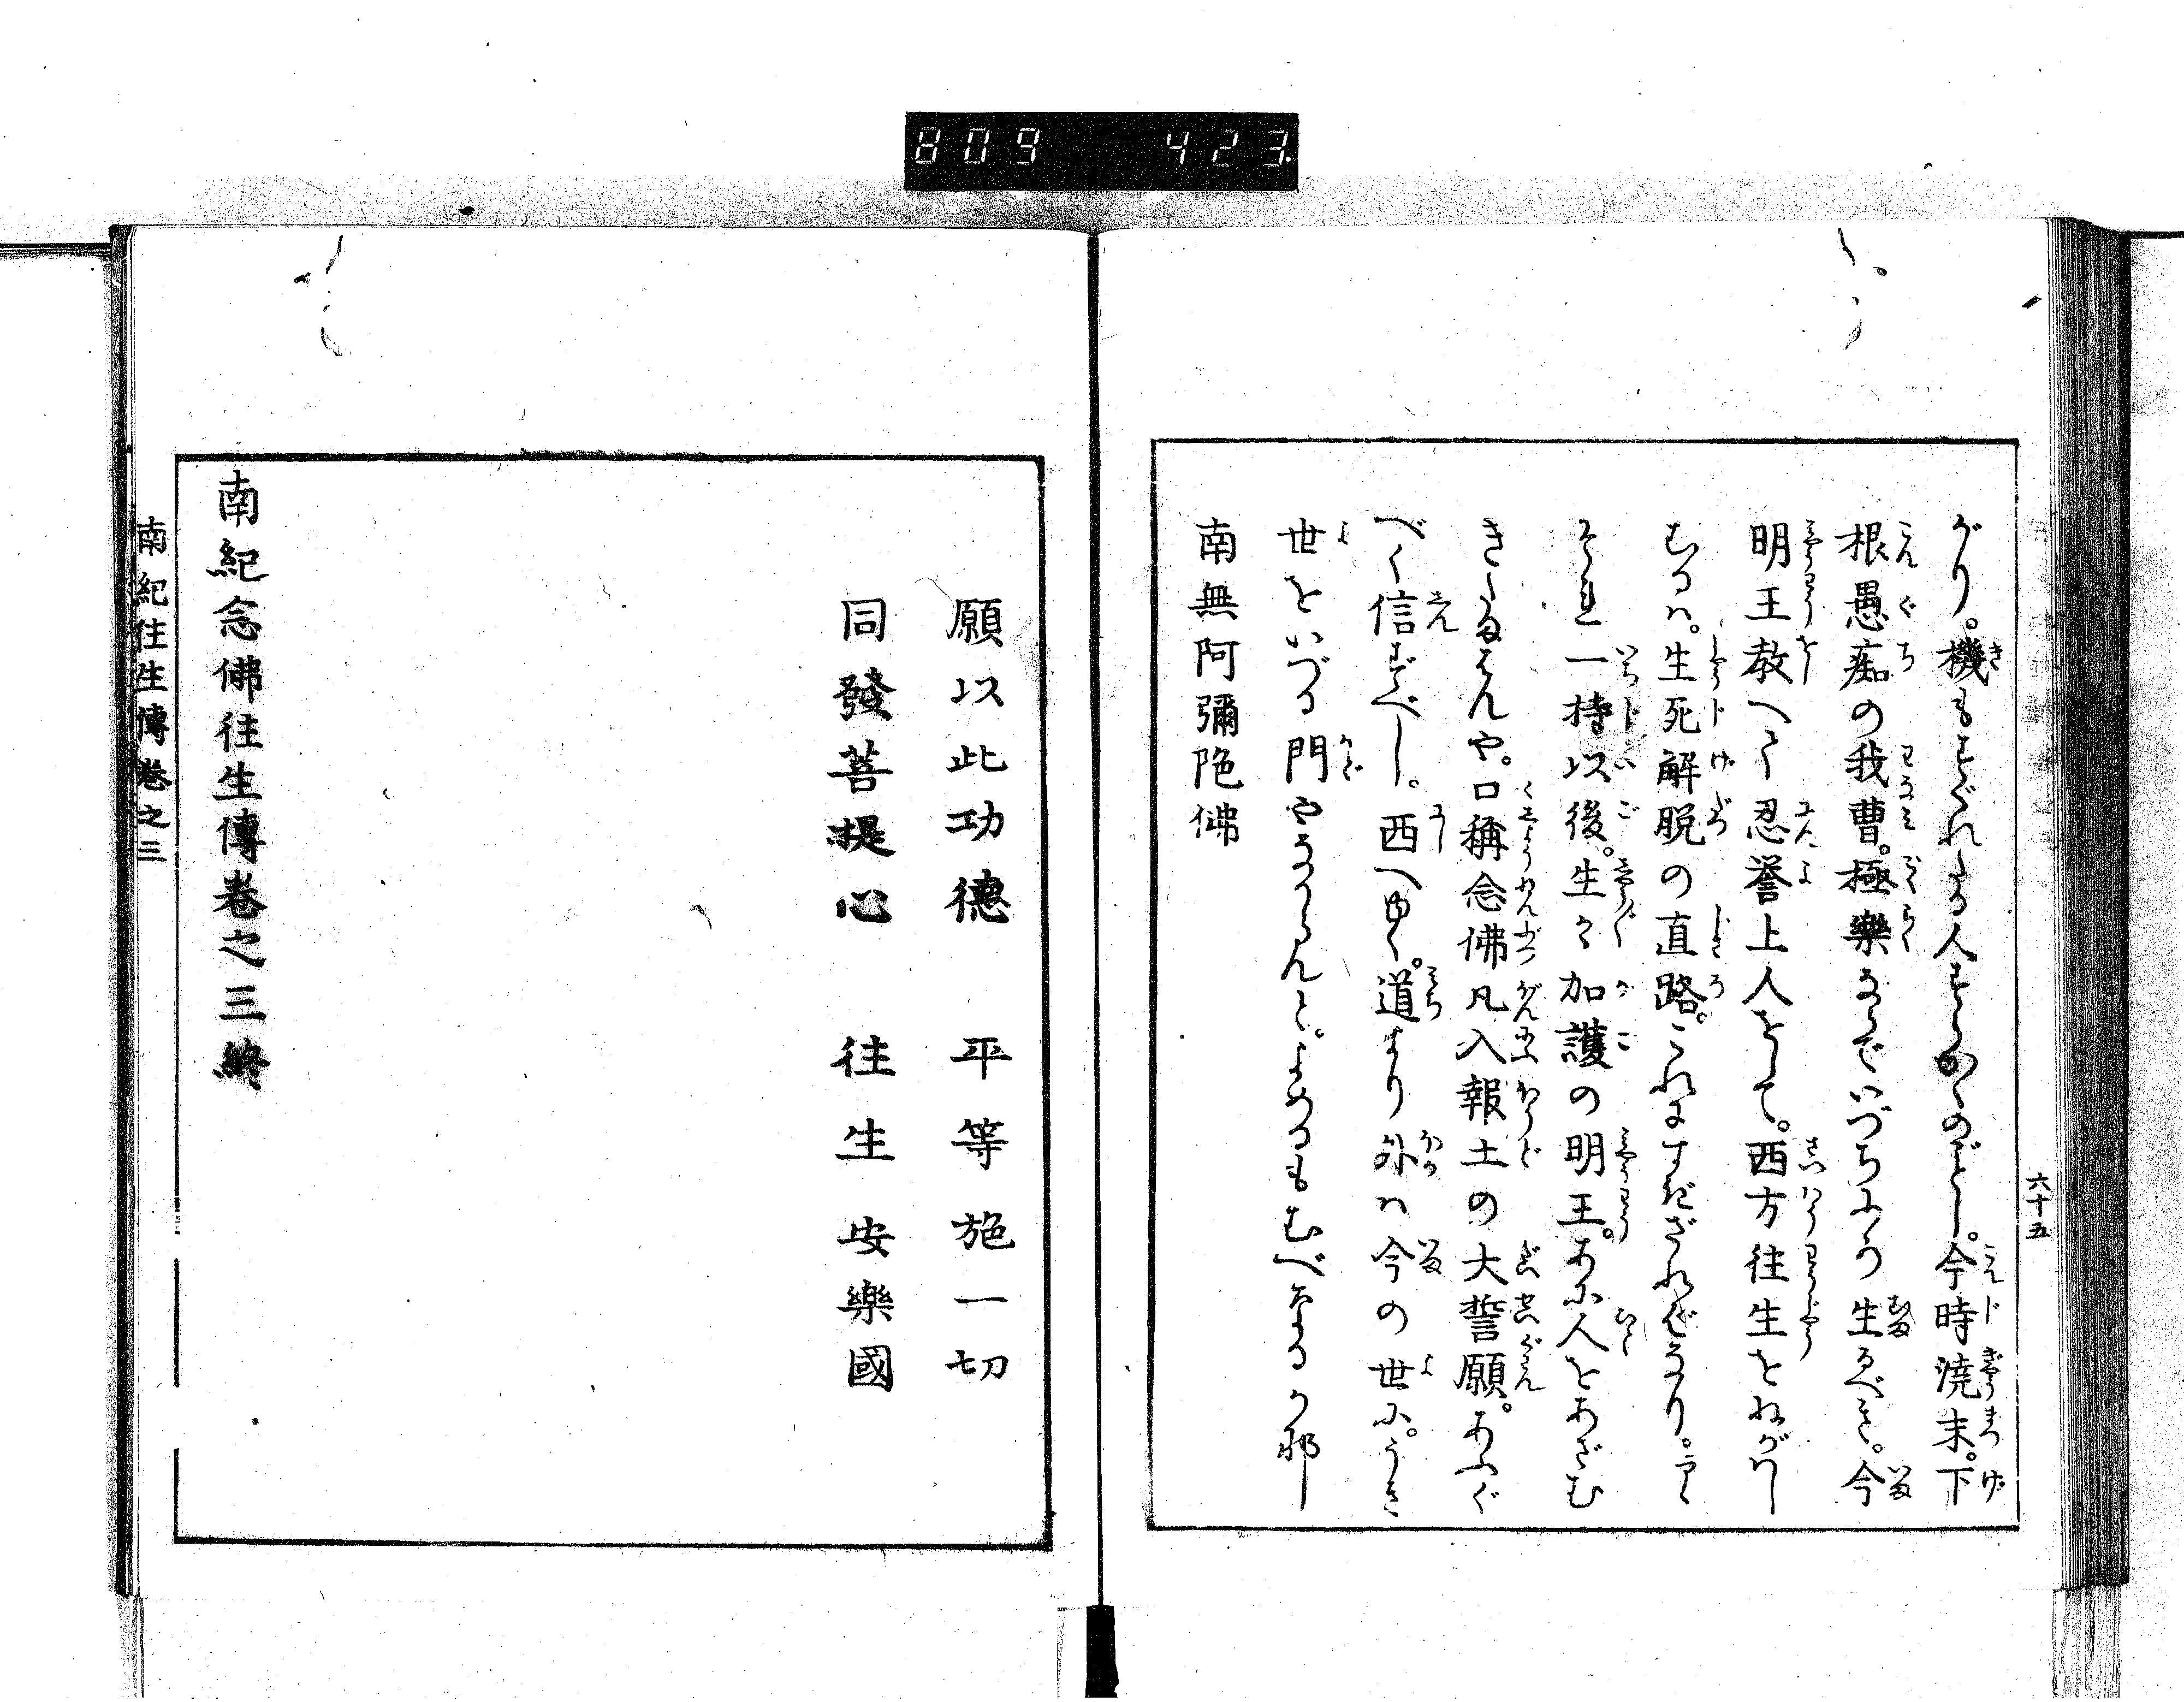 809 423.
がり。機もすぐれたる人すらかくのごとし。今時澆末。下
根愚痴の我曹。極樂ならでいづちにか生るべき。今
明王教へて忍誉上人をして。西方往生をねがはし
むるハ。生死解脱の直路。これにすぎざればなり。
一持以後。生々加護の明王。あに人をあざむ
きたまはんや。口稱念佛凡入報土の大誓願。あふぐ
べく信ずべし。西へゆく。道より外ハ今の世に。うき
世をいづる門やなからんと。よめるもむべなるか那
南無阿彌陀佛
六十五
願以此功德　平等施一切
同發菩提心　往生安樂國
南紀念佛往生傳卷之三終
南紀往生傳卷之三